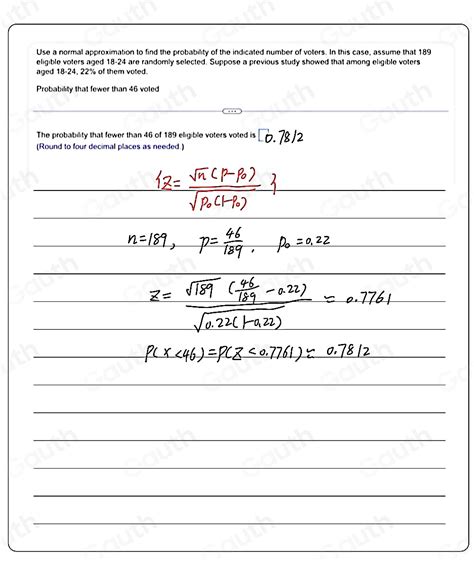 Use a normal approximation to find the probability of the indicated number of voters. In this case, assume that 189
eligible voters aged 18-24 are randomly selected. Suppose a previous study showed that among eligible voters
aged 18-24, 22% of them voted.
Probability that fewer than 46 voted
The probability that fewer than 46 of 189 eligible voters voted is 0.7812
(Round to four decimal places as needed.)
{z = √n (p-p₀) / √p₀(1-p₀) }
n=189, p= 46/189 , p₀ =0.22
z= √189 (46/189 -0.22) / √0.22(1-0.22) ≈ 0.7761
P(x<46)=P(Z<0.7761)≈ 0.7812